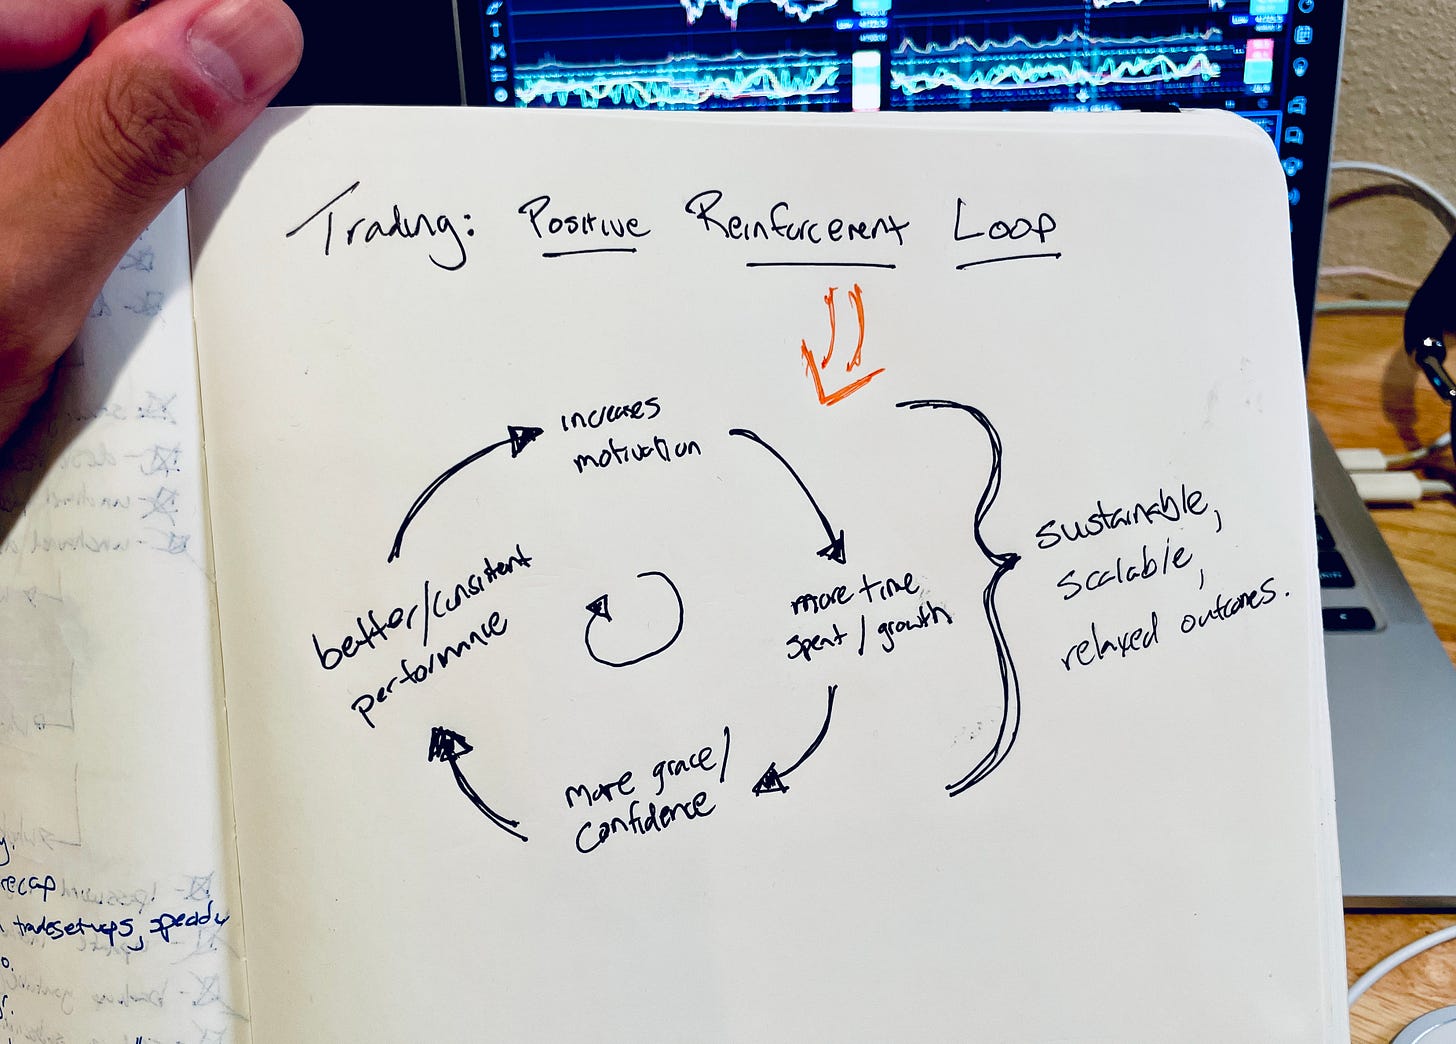 Trading: Positive Reinforcement Loop
increases
motivation
more time
spent / growth
more grace/
confidence
better/consistent
performance
sustainable,
scalable,
relaxed outcomes.
recap
tradesetups,